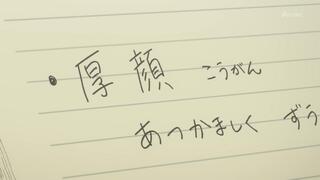 ・厚顔 こうがん
あつかましく ずう